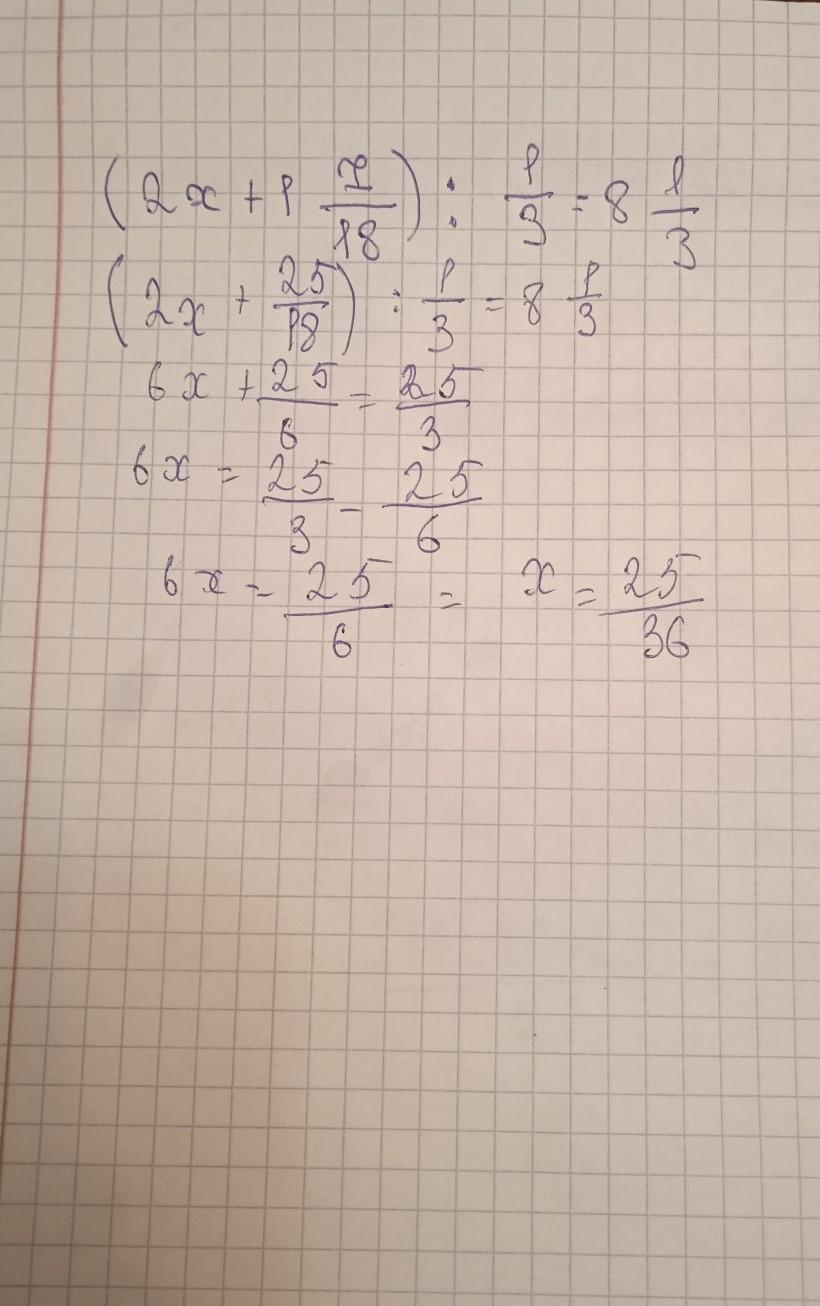 (2x + 1 7/18) : 1/3 = 8 1/3
(2x + 25/18) : 1/3 = 8 1/3
6x + 25/6 = 25/3
6x = 25/3 - 25/6
6x = 25/6 = x = 25/36